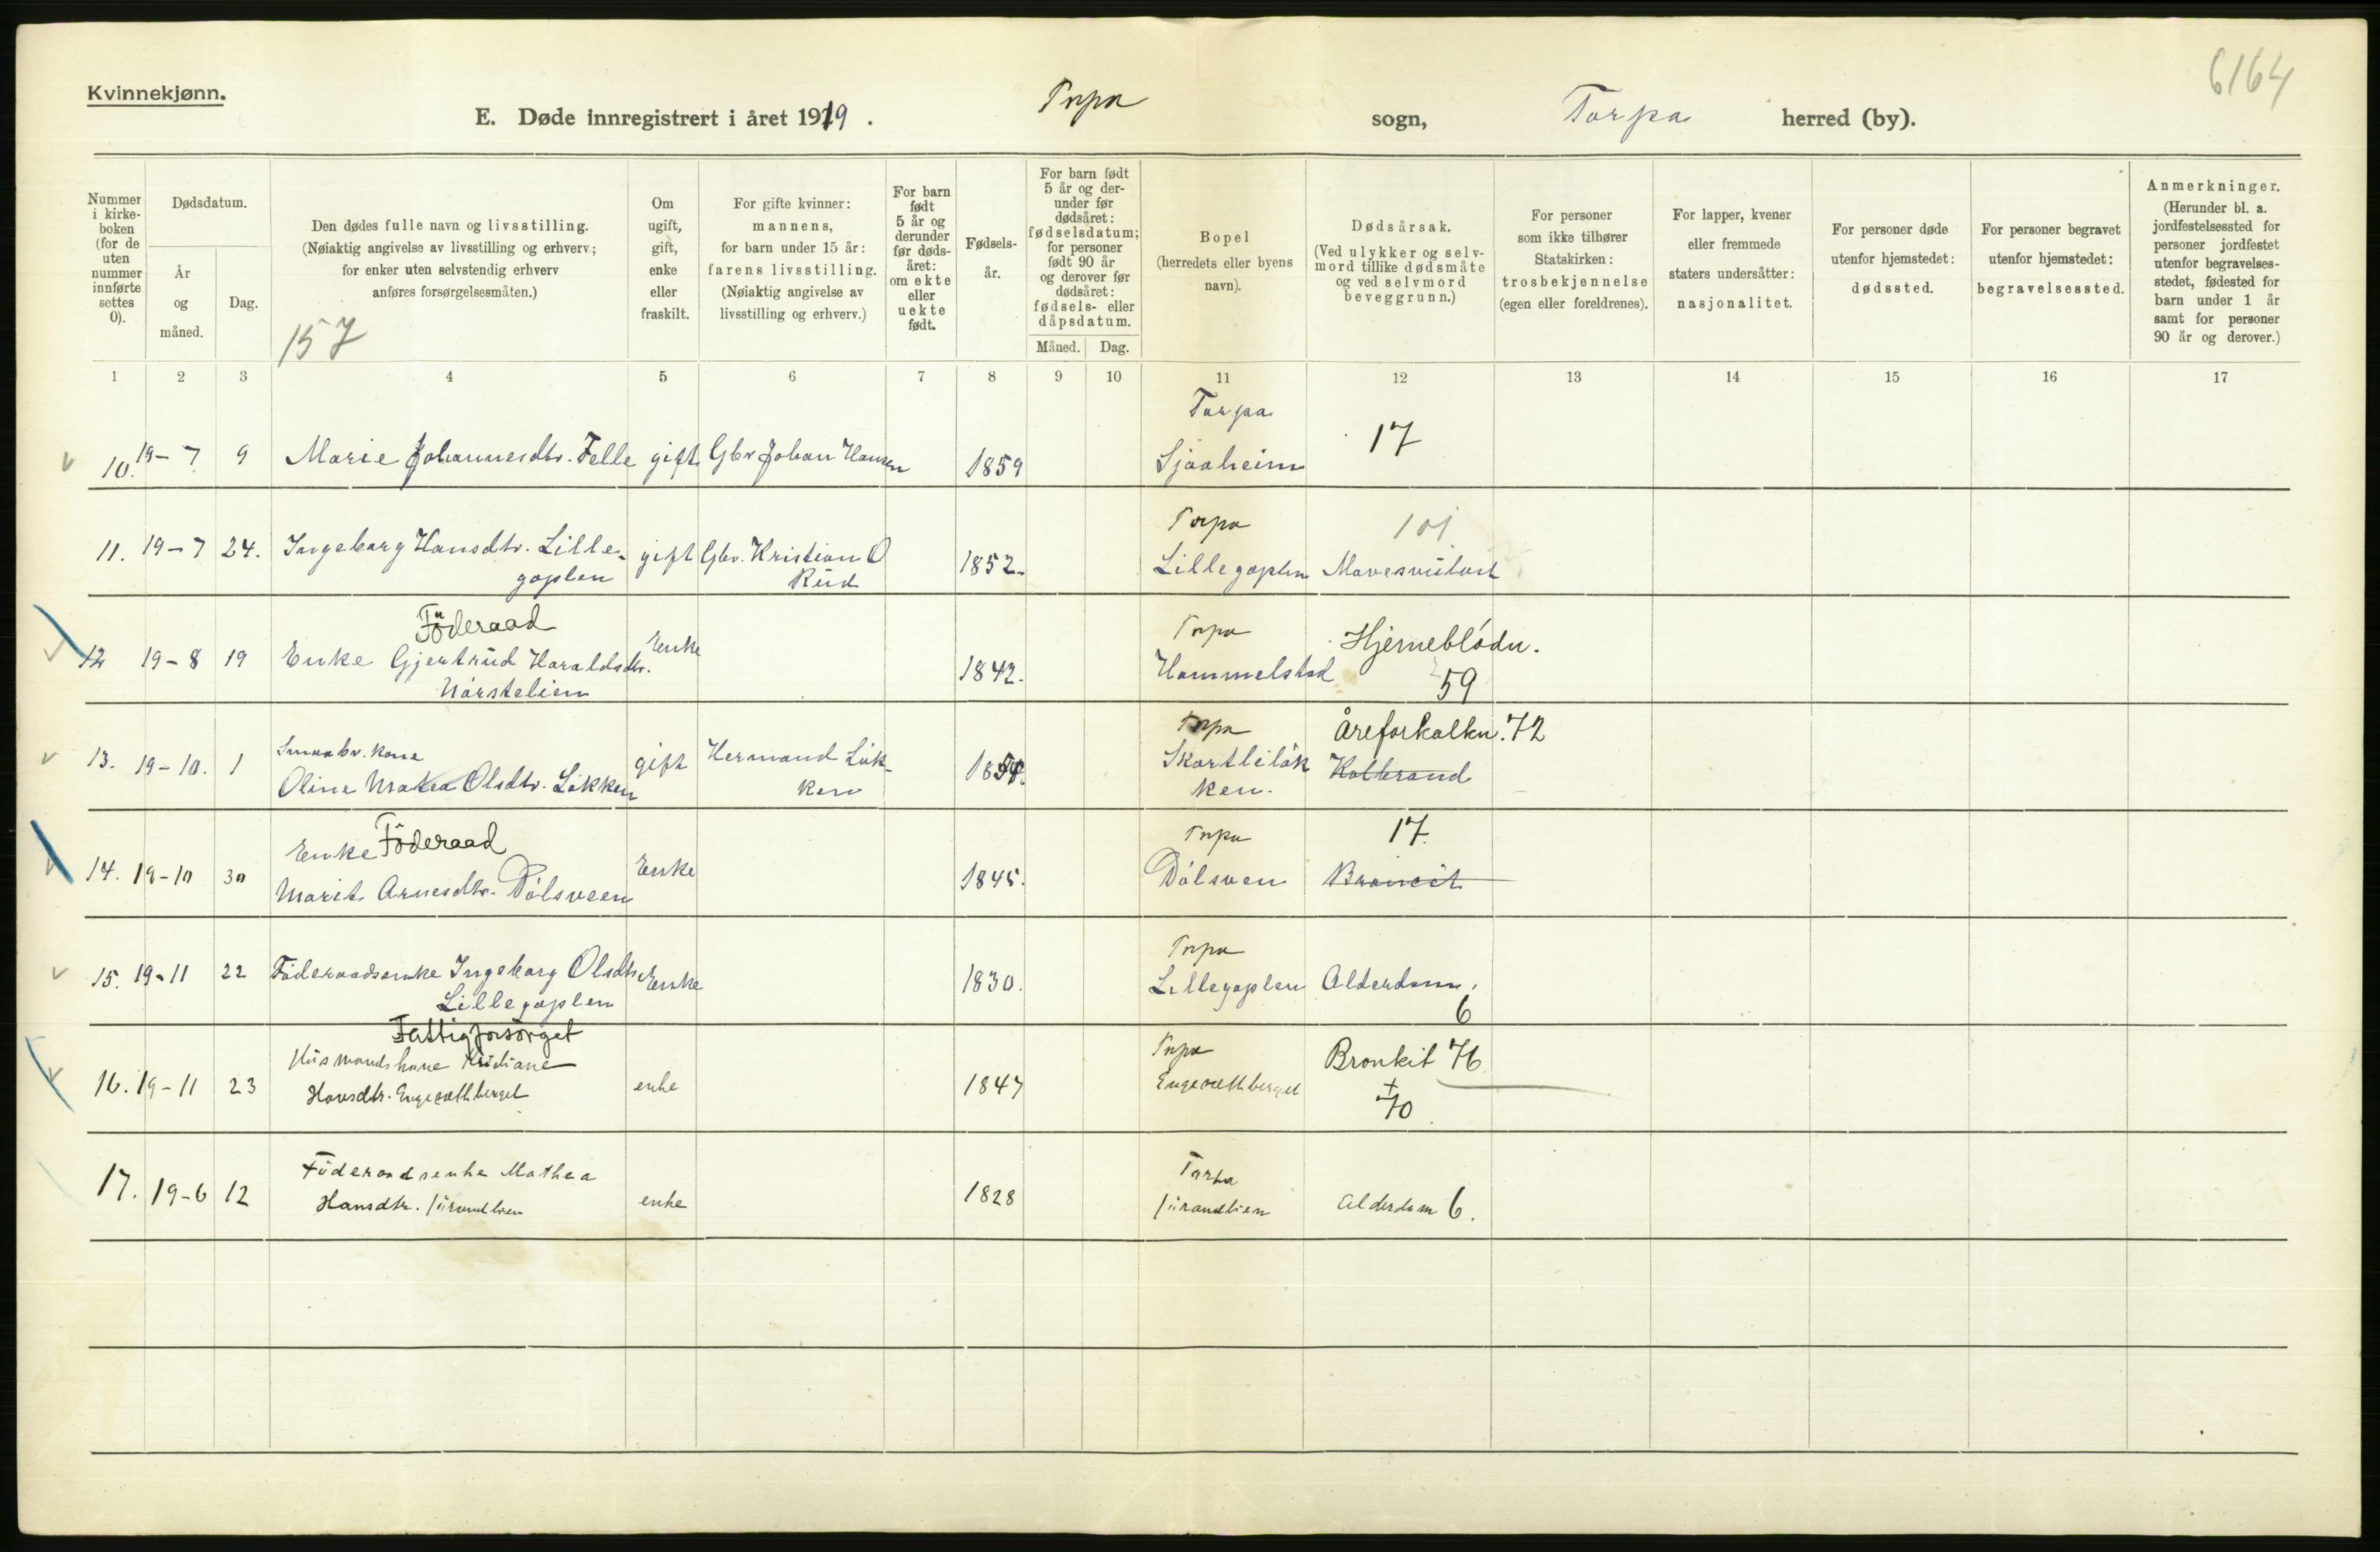 Kvinnekjønn.
6164
E. Døde innregistrert i året 1919. Torpa sogn, Torpa herred (by).
Nummer i kirkeboken (for de uten nummer innførte settes 0).
Dødsdatum.
År og måned.
Dag.
Den dødes fulle navn og livsstilling.
(Nøiaktig angivelse av livsstilling og erhverv;
for enker uten selvstendig erhverv
anføres forsørgelsesmåten.)
157
Om ugift, gift, enke eller fraskilt.
For gifte kvinner:
mannens,
for barn under 15 år:
farens livsstilling.
(Nøiaktig angivelse av
livsstilling og erhverv.)
For barn født 5 år og derunder før dødsåret: om ekte eller uekte født.
Fødselsår.
For barn født 5 år og derunder før dødsåret: fødselsdatum; for personer født 90 år og derover før dødsåret: fødsels- eller dåpsdatum.
Måned. Dag.
Bopel
(herredets eller byens
navn).
Dødsårsak.
(Ved ulykker og selvmord tillike dødsmåte og ved selvmord beveggrunn.)
For personer
som ikke tilhører
Statskirken:
trosbekjennelse
(egen eller foreldrenes).
For lapper, kvener
eller fremmede
staters undersåtter:
nasjonalitet.
For personer døde
utenfor hjemstedet:
dødssted.
For personer begravet
utenfor hjemstedet:
begravelsessted.
Anmerkninger.
(Herunder bl. a.
jordfestelsessted for
personer jordfestet
utenfor begravelsesstedet, fødested for
barn under 1 år
samt for personer
90 år og derover.)
1 2 3 4 5 6 7 8 9 10 11 12 13 14 15 16 17
Torpa
10. 19-7 9 Marie Johannesdtr. Felle gift Gbr Johan Hansen 1859 Sjaaheim 17
Torpa 101
11. 19-7 24. Ingeborg Hansdtr. Lille- gift Gbr. Kristian O 1852. Lillegaplen
gaplen Rud
Föderaad Torpa Hjerneblødn.
12 19-8 19 Enke Gjertrud Haraldsdtr. Enke 1842. Hammelstad 59
Nørstelien
Smaabr. kone Torpa Åreforkalkn. 72
13. 19-10. 1 Oline Matea Olsdtr. Løkken gift Hermand Løk- 1854. Skartliløk
ken ken.
Enke Föderaad Torpa 17.
14. 19-10 30 Marit Arnesdtr. Dølsveen Enke 1845. Dølsveen
Torpa
15. 19-11 22 Föderaadsenke Ingeborg Olsdtr. Enke 1830. Lillegaplen Alderdom.
Lillegaplen 6
Fattigforsørget
Husmandskone Kristiane Torpa Bronkit 76
16. 19-11 23 Hansdtr. Engesethberget enke 1847 Engesethberget + 70
Föderaadsenke Mathea Torpa
17. 19-6 12 Hansdtr. enke 1828 Alderdom 6.